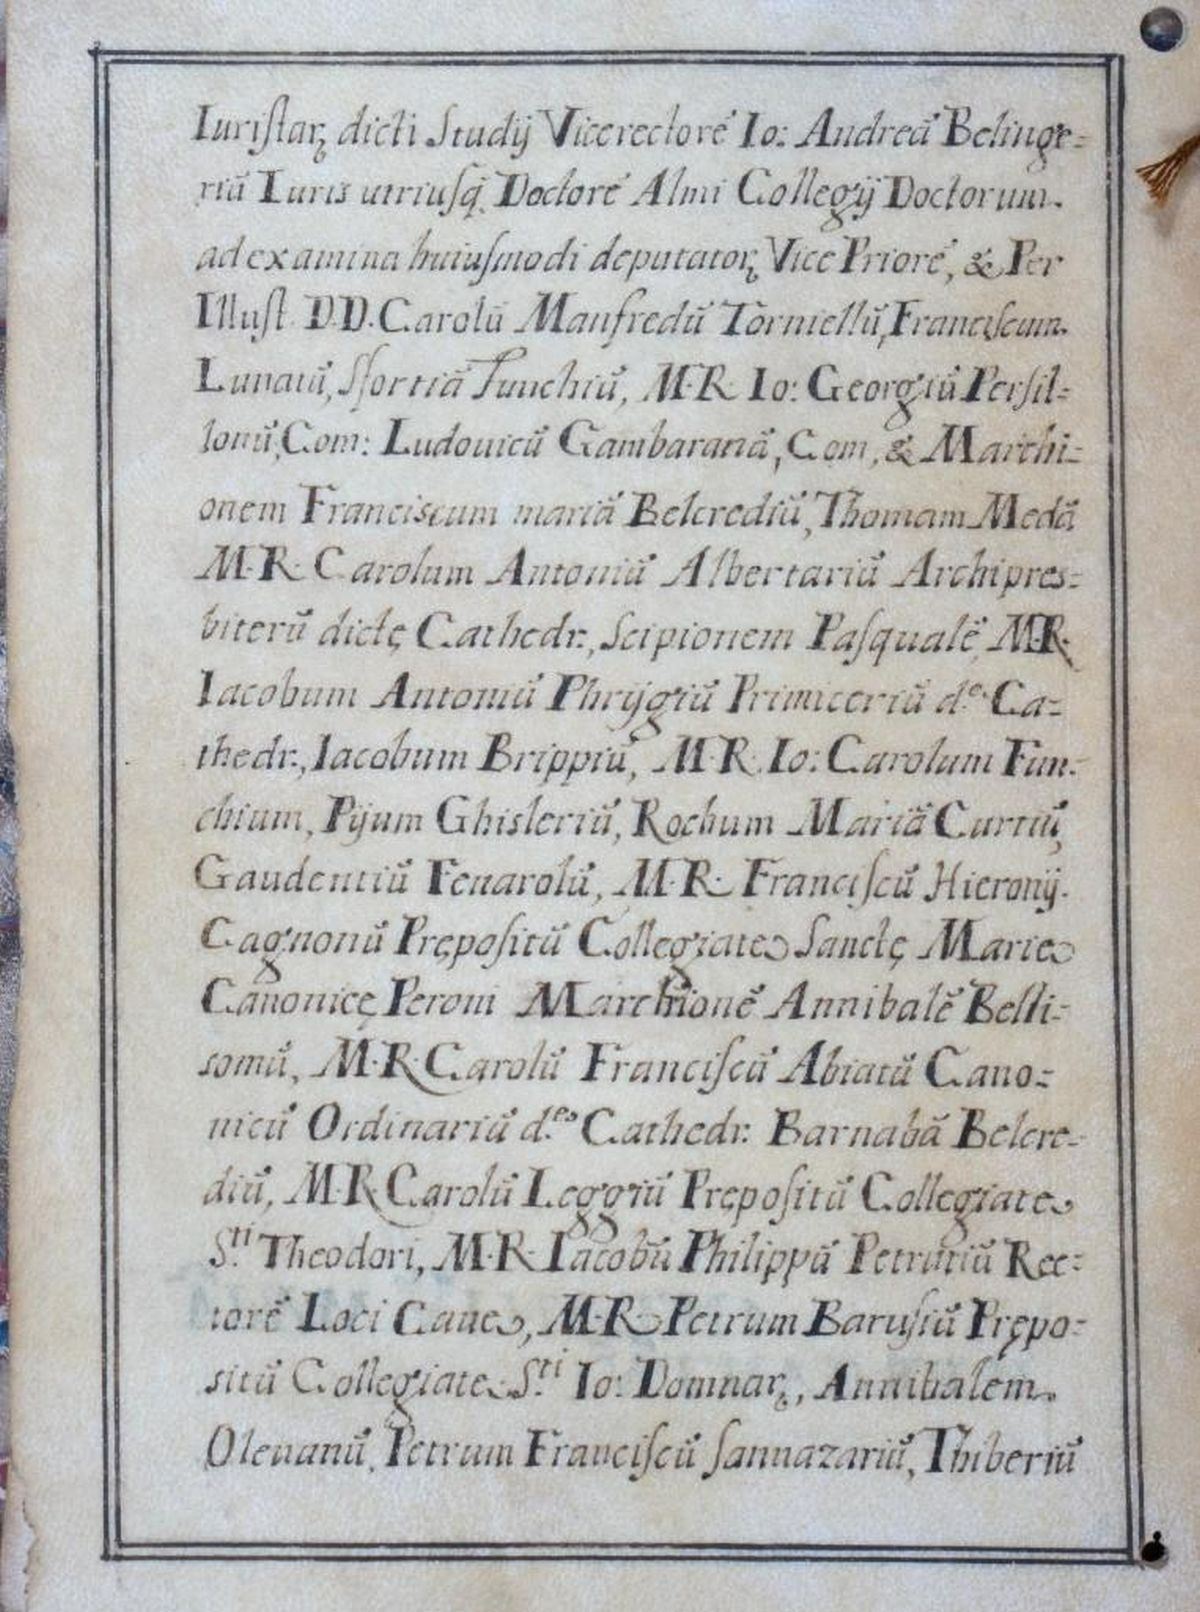 Iuristaꝝ dicti Studij Vicerectorẽ Io: Andreã Belinge=
riã Iuris utriusq̃. Doctorẽ Almi Collegij Doctorum
ad examina huiusmodi deputatoꝝ Vice Priorẽ, & Per
Illust. D.D. Carolũ Manfredũ Torniellũ, Franciscum
Lunatũ, Sfortiã Funchiũ, M.R. Io: Georgiũ Persil=
lonũ, Com: Ludouicũ Gambaranã, Com, & Marchi=
onem Franciscum mariã Belcrediũ, Thomam Medã
M.R. Carolum Antoniũ Albertariũ Archipres=
biterũ dictę Cathedr:, Scipionem Pasqualẽ, M.R.
Iacobum Antoniũ Phrijgiũ Primiceriũ d.ᵉ Ca=
thedr:, Iacobum Brippiũ, M.R. Io: Carolum Fun=
chium, Pijum Ghisleriũ, Rochum Mariã Curtiũ,
Gaudentiũ Fenarolũ, M.R. Franciscũ Hieronij.
Cagnonũ Prępositũ Collegiate Sanctę Marie
Canonicę Peroni Marchionẽ Annibalẽ Belli=
somũ, M.R. Carolũ Franciscũ Abiatũ Cano=
nicũ Ordinariũ d.ᵉ Cathedr: Barnabã Belcre=
diũ, M.R. Carolũ Leggiũ Prępositũ Collegiate
S.ᵗⁱ Theodori, M.R. Iacobũ Philippũ Petrutiũ Rec=
torẽ Loci Caue, M.R. Petrum Barusiũ Prępo=
sitũ Collegiate S.ᵗⁱ Io: Domnaꝝ, Annibalem
Oleuanũ, Petrum Franciscũ Sannazariũ, Thiberiũ